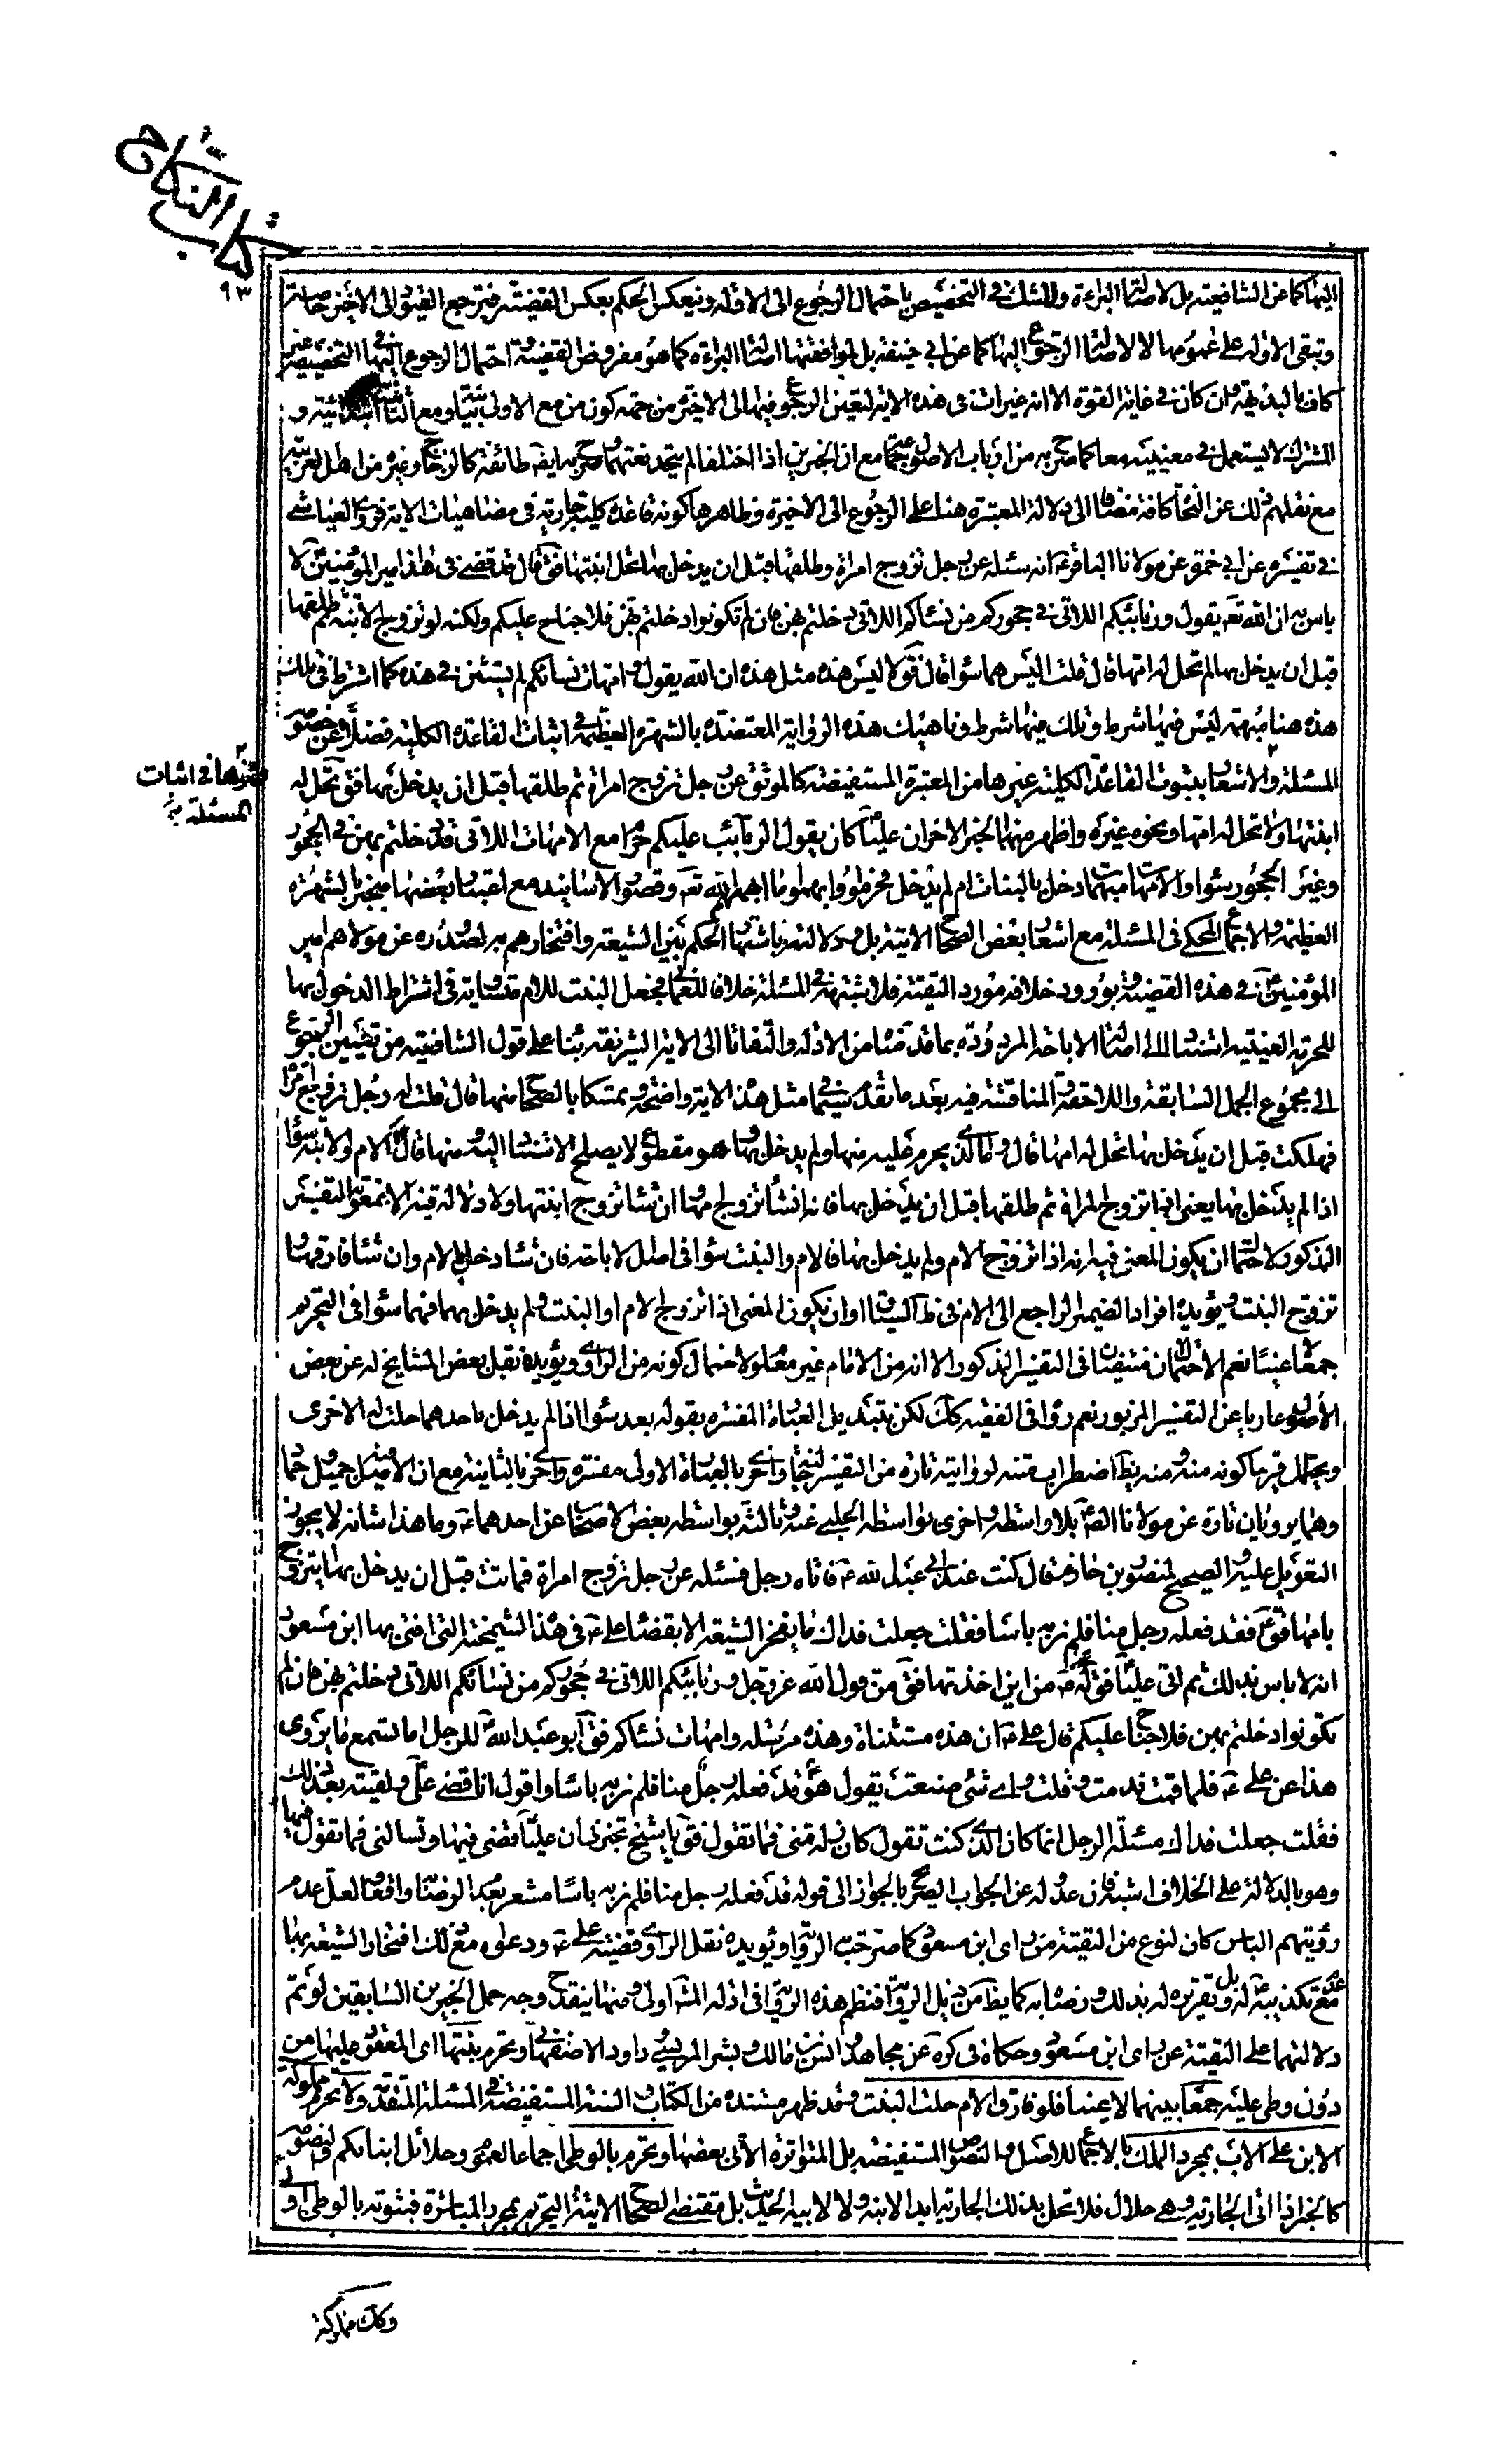 كتاب النكاح
٩٣
اليها كما عن الشافعية بل لاصالة البراءة والشك في التخصيص باحتمال الرجوع الى الاولة وينعكس الحكم بعكس القضية فيترجع القيد الى الاخيرة خاصة
وتبقى الاولة على عمومها لا لاصالة الرجوع اليها كما عن ابي حنيفة بل لموافقتها اصالة البراءة كما هو مفروض القضية و احتمال الرجوع اليهما في التخصيص غير
كاف بالبديهة وان كان في غاية القوة الا انه غير ات في هذه الاية لتعين الرجوع فيها الى الاخيرة من جهة كون من مع الاولى بيانية ومع الثانية ابتدائية و
المشترك لا يستعمل في معنييه معا كما صرح به من ارباب الاصول جماعة مع ان الخبرين اذا اختلفا لم يتحد نعتهما صرح به ايضا طائفة كالزجاج وغيره من اهل العربية
مع نقلهم ذلك عن النحاة كافة مضافا الى دلالة المعتبرة هنا على الرجوع الى الاخيرة وظاهرها كونه قاعدة كلية جارية في مضاهيات الاية فروى العياشي
في تفسيره عن ابي حمزة عن مولانا الباقر ع انه سئله عن رجل تزوج امراة وطلقها قبل ان يدخل بها اتحل ابنتها فق قال قد قضى في هذا امير المؤمنين ع لا
باس به ان الله تعم يقول وربائبكم اللاتي في حجوركم من نسائكم اللاتي دخلتم بهن فان لم تكونوا دخلتم بهن فلا جناح عليكم ولكنه لو تزوج الابنة ثم طلقها
قبل ان يدخل بها لم تحل له امها قال قلت اليس هما سواء قال فق لا ليس هذه مثل هذه ان الله يقول و امهات نسائكم لم يستثن في هذه كما اشترط في تلك
هذه هنا مبهمة ليس فيها شرط وتلك فيها شرط وناهيك هذه الرواية المعتضدة بالشهرة العظيمة في اثبات القاعدة الكلية فضلا عن خصوص
المسئلة و الاشعار بثبوت القاعدة الكلية غيرها من المعتبرة المستفيضة كالموثق عن رجل تزوج امراة ثم طلقها قبل ان يدخل بها فق تحل له
في اثبات
المسئلة
ابنتها ولا تحل له امها ونحوه غيره واظهر منهما الخبر الاخر ان عليا ع كان يقول الربائب عليكم حرام مع الامهات اللاتي قد دخلتم بهن في الحجور
وغير الحجور سواء والامهات مبهمات دخل بالبنات ام لم يدخل فحرموا وابهموا ما ابهم الله تعم وقصور الاسانيد مع اعتبار بعضها منجبر بالشهرة
العظيمة والاجماع المحكي في المسئلة مع اشعار بعض الصحاح الاتية بل ودلالته باشتهار الحكم بين الشيعة وافتخارهم به لصدوره عن مولاهم امير
المؤمنين ع في هذه القضية وبورود خلافه مورد التقية فلا شبهة في المسئلة خلافا للعماني فجعل البنت للام متساوية في اشتراط الدخول بها
للحرمة العينية استنادا الى اصالة الاباحة المردودة بما قدمنا من الادلة والتفاتا الى الاية الشريفة بناء على قول الشافعية من تعيين الرجوع
الى مجموع الجمل السابقة واللاحقة و المناقشة فيه بعد ما تقدم سيما في مثل هذه الاية واضحة وتمسكا بالصحاح منها قال قلت له رجل تزوج امراة
فهلكت قبل ان يدخل بها تحل له امها قال و ما الذي يحرم عليه منها ولم يدخل بها وهو مقطوع لا يصلح الاستناد اليه و منها قال الام والابنة سواء
اذا لم يدخل بها يعني اذا تزوج المراة ثم طلقها قبل ان يدخل بها فانه ان شاء تزوج امها وان شاء تزوج ابنتها ولا دلالة فيه الا بمعونة التفسير
المذكور لاحتمال ان يكون المعنى فيه انه اذا تزوج الام ولم يدخل بها فالام والبنت سواء في اصل الاباحة فان شاء دخل بالام وان شاء فارقها و
تزوج البنت ويؤيده افراد الضمير الراجع الى الام في ظ السياق او ان يكون المعنى اذا تزوج الام او البنت ولم يدخل بهما فهما سواء في التحريم
جمعا لا عينا نعم الاحتمالان منتفيان في التفسير المذكور الا انه من الامام غير معلوم لاحتمال كونه من الراوي ويؤيده نقل بعض المشايخ له عن بعض
الاصول عاريا عن التفسير المزبور نعم رواه في الفقيه كك لكن بتبديل العبارة المفسرة بقوله بعد سواء اذا لم يدخل باحدهما حلت له الاخرى
ويحتمل قريبا كونه منه و منه يظ اضطراب متنه لروايته تارة من التفسير واخرى بالعبارة الاولى مفسرة واخرى بالثانية مع ان الاصل جميل وحماد
وهما يرويان تارة عن مولانا الص ع بلا واسطة و اخرى بواسطة الحلبي عنه و ثالثة بواسطة بعض الاصحاب عن احدهما ع وما هذا شانه لا يجوز
التعويل عليه و الصحيح لمنصور بن حازم قال كنت عند ابي عبد الله ع فاتاه رجل فسئله عن رجل تزوج امراة فماتت قبل ان يدخل بها ايتزوج
بامها فق قد فعله رجل منا فلم نر به باسا فقلت جعلت فداك ما يفخر الشيعة الا بقضاء علي ع في هذا الشمخية التي افتى بها ابن مسعود
انه لا باس بذلك ثم اتى عليا ع فق له ع من اين اخذتها فق من قول الله عز وجل وربائبكم اللاتي في حجوركم من نسائكم اللاتي دخلتم بهن فان لم
تكونوا دخلتم بهن فلا جناح عليكم قال علي ع ان هذه مستثناة وهذه مرسلة وامهات نسائكم فق ابو عبد الله ع للرجل اما تسمع ما يروى
هذا عن علي ع فلما قمت ندمت و قلت اي شئ صنعت يقول هو قد فعله رجل منا فلم نر به باسا واقول انا قضى علي ع فلقيته بعد ذلك
فقلت جعلت فداك مسئلة الرجل انما كان الذي كنت تقول كان زلة مني فما تقول فق يا شيخ تخبرني ان عليا ع قضى فيها وتسالني فما تقول فيها
وهو بالدلالة على الخلاف اشبه فان عدوله عن الجواب الصريح بالجواز الى قوله قد فعله رجل منا فلم نر به باسا مشعر بعدم الرضا واقعا ولعل عدم
رؤيتهم الباس كان لنوع من التقية من راي ابن مسعود كما صرحت به الرواية ويؤيده نقل الراوي قضية علي ع ودعواه مع ذلك افتخار الشيعة بها
مع عدم تكذيبه ع له بل وتقريره له بذلك ورضاه به كما يظ من ذيل الرواية فنظم هذه الرواية في ادلة المش اولى ومنها ينقدح وجه حمل الخبرين السابقين لو تم
دلالتهما على التقية عن راي ابن مسعود وحكاه في كره عن مجاهد و انس بن مالك و بشر المريسي و داود الاصفهاني وتحرم بنتها اي المعقود عليها من
دون وطى عليه جمعا بينهما لا عينا فلو فارق الام حلت البنت وقد ظهر مستنده من الكتاب و السنة المستفيضة في المسئلة المتقدمة ولا تحرم مملوكة
الابن على الاب بمجرد الملك بالاجماع للاصل والنصوص المستفيضة بل المتواترة الاتي بعضها وتحرم بالوطي اجماعا لعموم وحلائل ابنائكم ولنصوص
كالخبر اذا اتى الجارية وهي حلال فلا تحل بذلك الجارية ابدا لابنه ولا لابيه الحديث بل مقتضى الصحاح الاتية التحريم بمجرد المباشرة فبثبوته بالوطى اولى و
وكك مملوكة